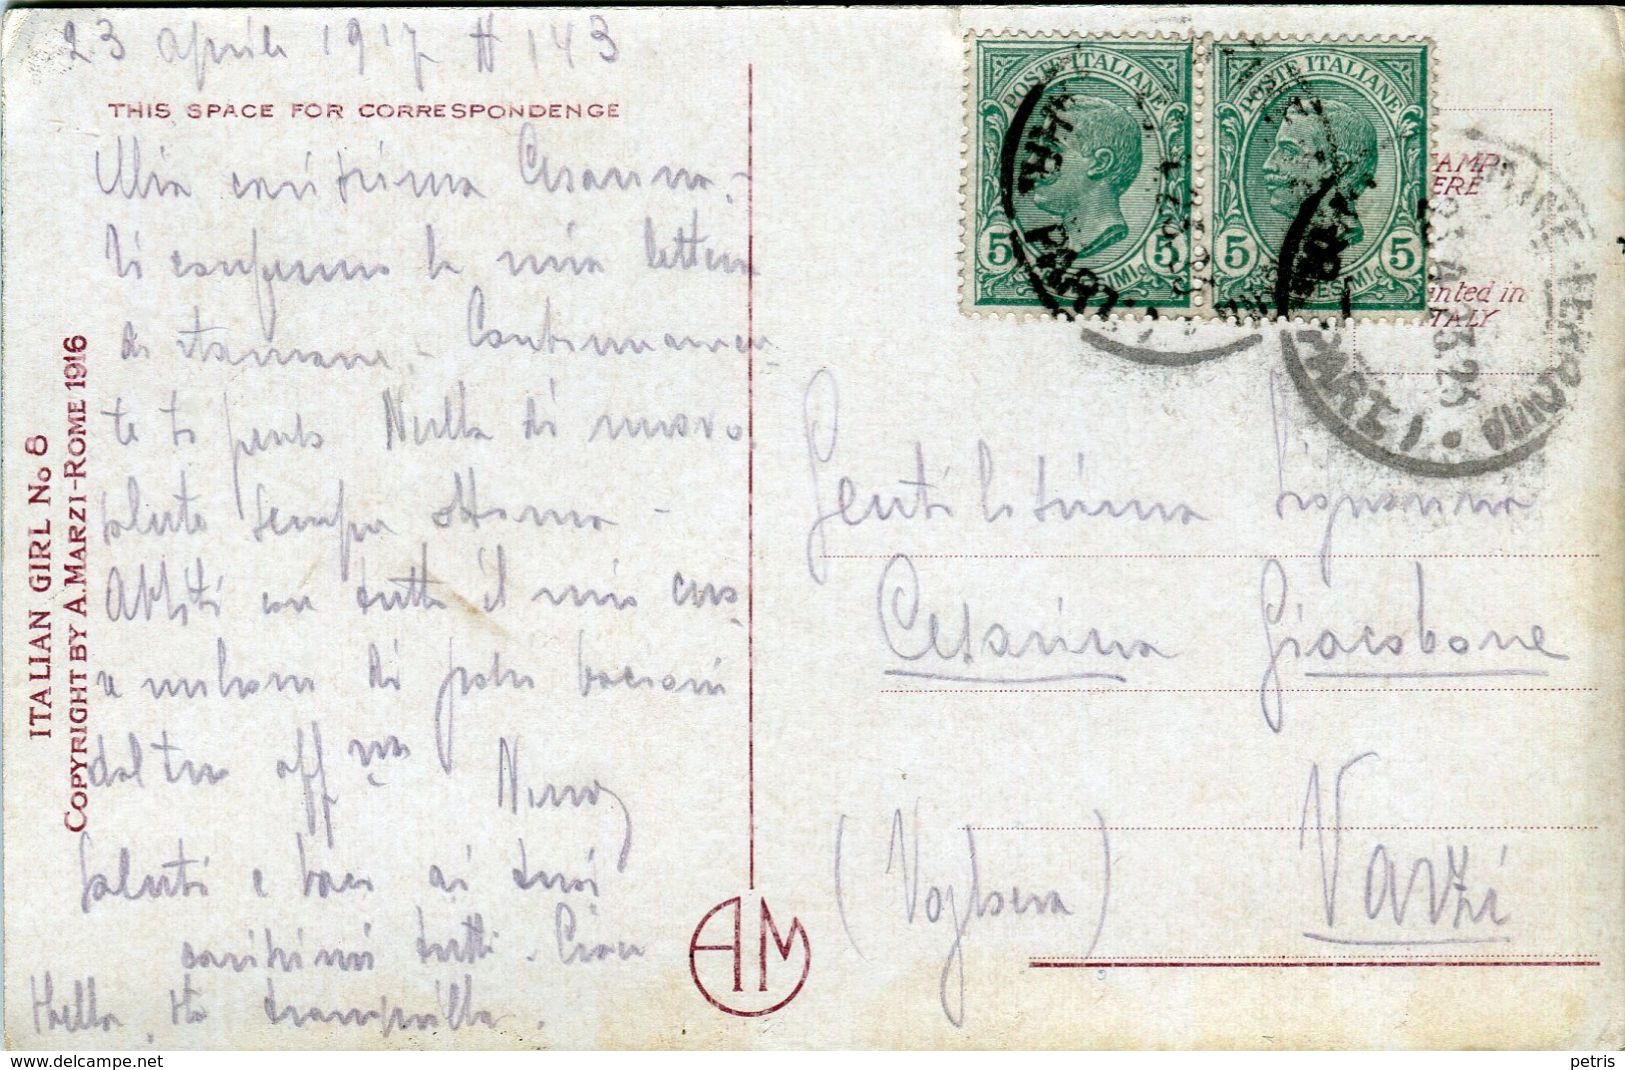 23 aprile 1917 # 143
THIS SPACE FOR CORRESPONDENGE
Mia carissima Cesarina -
Ti confermo la mia lettera
di stamane. Continuamen
te ti penso Nulla di nuovo.
salute sempre ottima -
Abbiti con tutto il mio cuore
un milione di bacioni
dal tuo aff.mo
Nino
Saluti e baci ai tuoi
carissimi tutti. Ciao
Stella, sta tranquilla.
ITALIAN GIRL No 8
COPYRIGHT BY A. MARZI-ROME 1916
AM
POSTE ITALIANE
5 5
POSTE ITALIANE
5 5
STAMP
HERE
Printed in
ITALY
UDINE FERROVIA
PARTENZA
Gentilissima Signorina
Cesarina Giacobone
(Voghera) Varzi
www.delcampe.net
petris